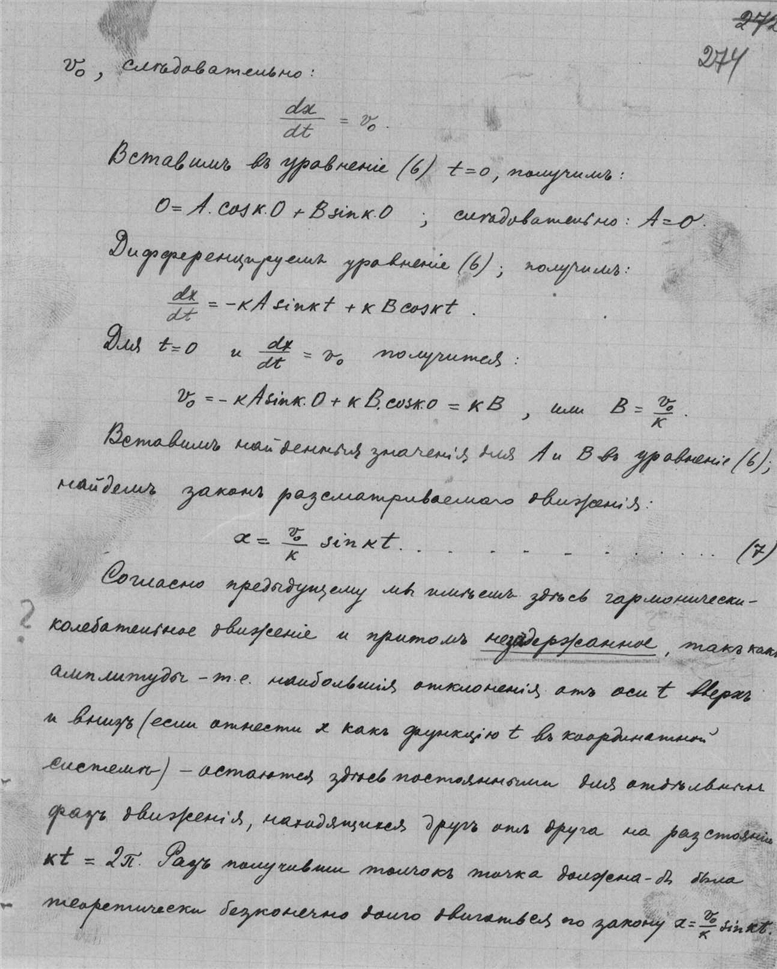 272
274
v₀, слѣдовательно:
dx/dt = v₀.
Вставимъ въ уравненіе (6) t=0, получимъ:
0 = A.cosк.0 + B sinк.0 ; слѣдовательно: A=0.
Дифференцируемъ уравненіе (6); получимъ:
dx/dt = -кA sinкt + кB cosкt.
Для t=0 и dx/dt = v₀ получится:
v₀ = -кA sinк.0 + кB.cosк0 = кB , или B = v₀/к.
Вставимъ найденныя значенія для A и B въ уравненіе (6);
найдемъ законъ разсматриваемаго движенія:
x = v₀/к sinкt. . . . . . . . . . . . (7)
Согласно предыдущему мы имѣемъ здѣсь гармонически-
?
колебательное движеніе и притомъ незадержанное, такъ какъ
амплитуды - т.е. наибольшія отклоненія отъ оси t вверхъ
и внизъ (если отнести x какъ функцію t въ координатной
системѣ) - остаются здѣсь постоянными для отдѣльныхъ
фазъ движенія, находящихся другъ отъ друга на разстояніи
кt = 2π. Разъ получивши толчокъ точка должна-бъ была
теоретически безконечно долго двигаться по закону x = v₀/к sinкt.